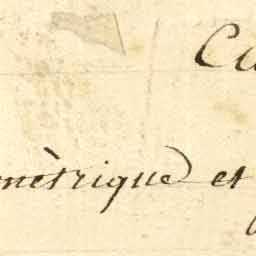 Ca
mètrique et